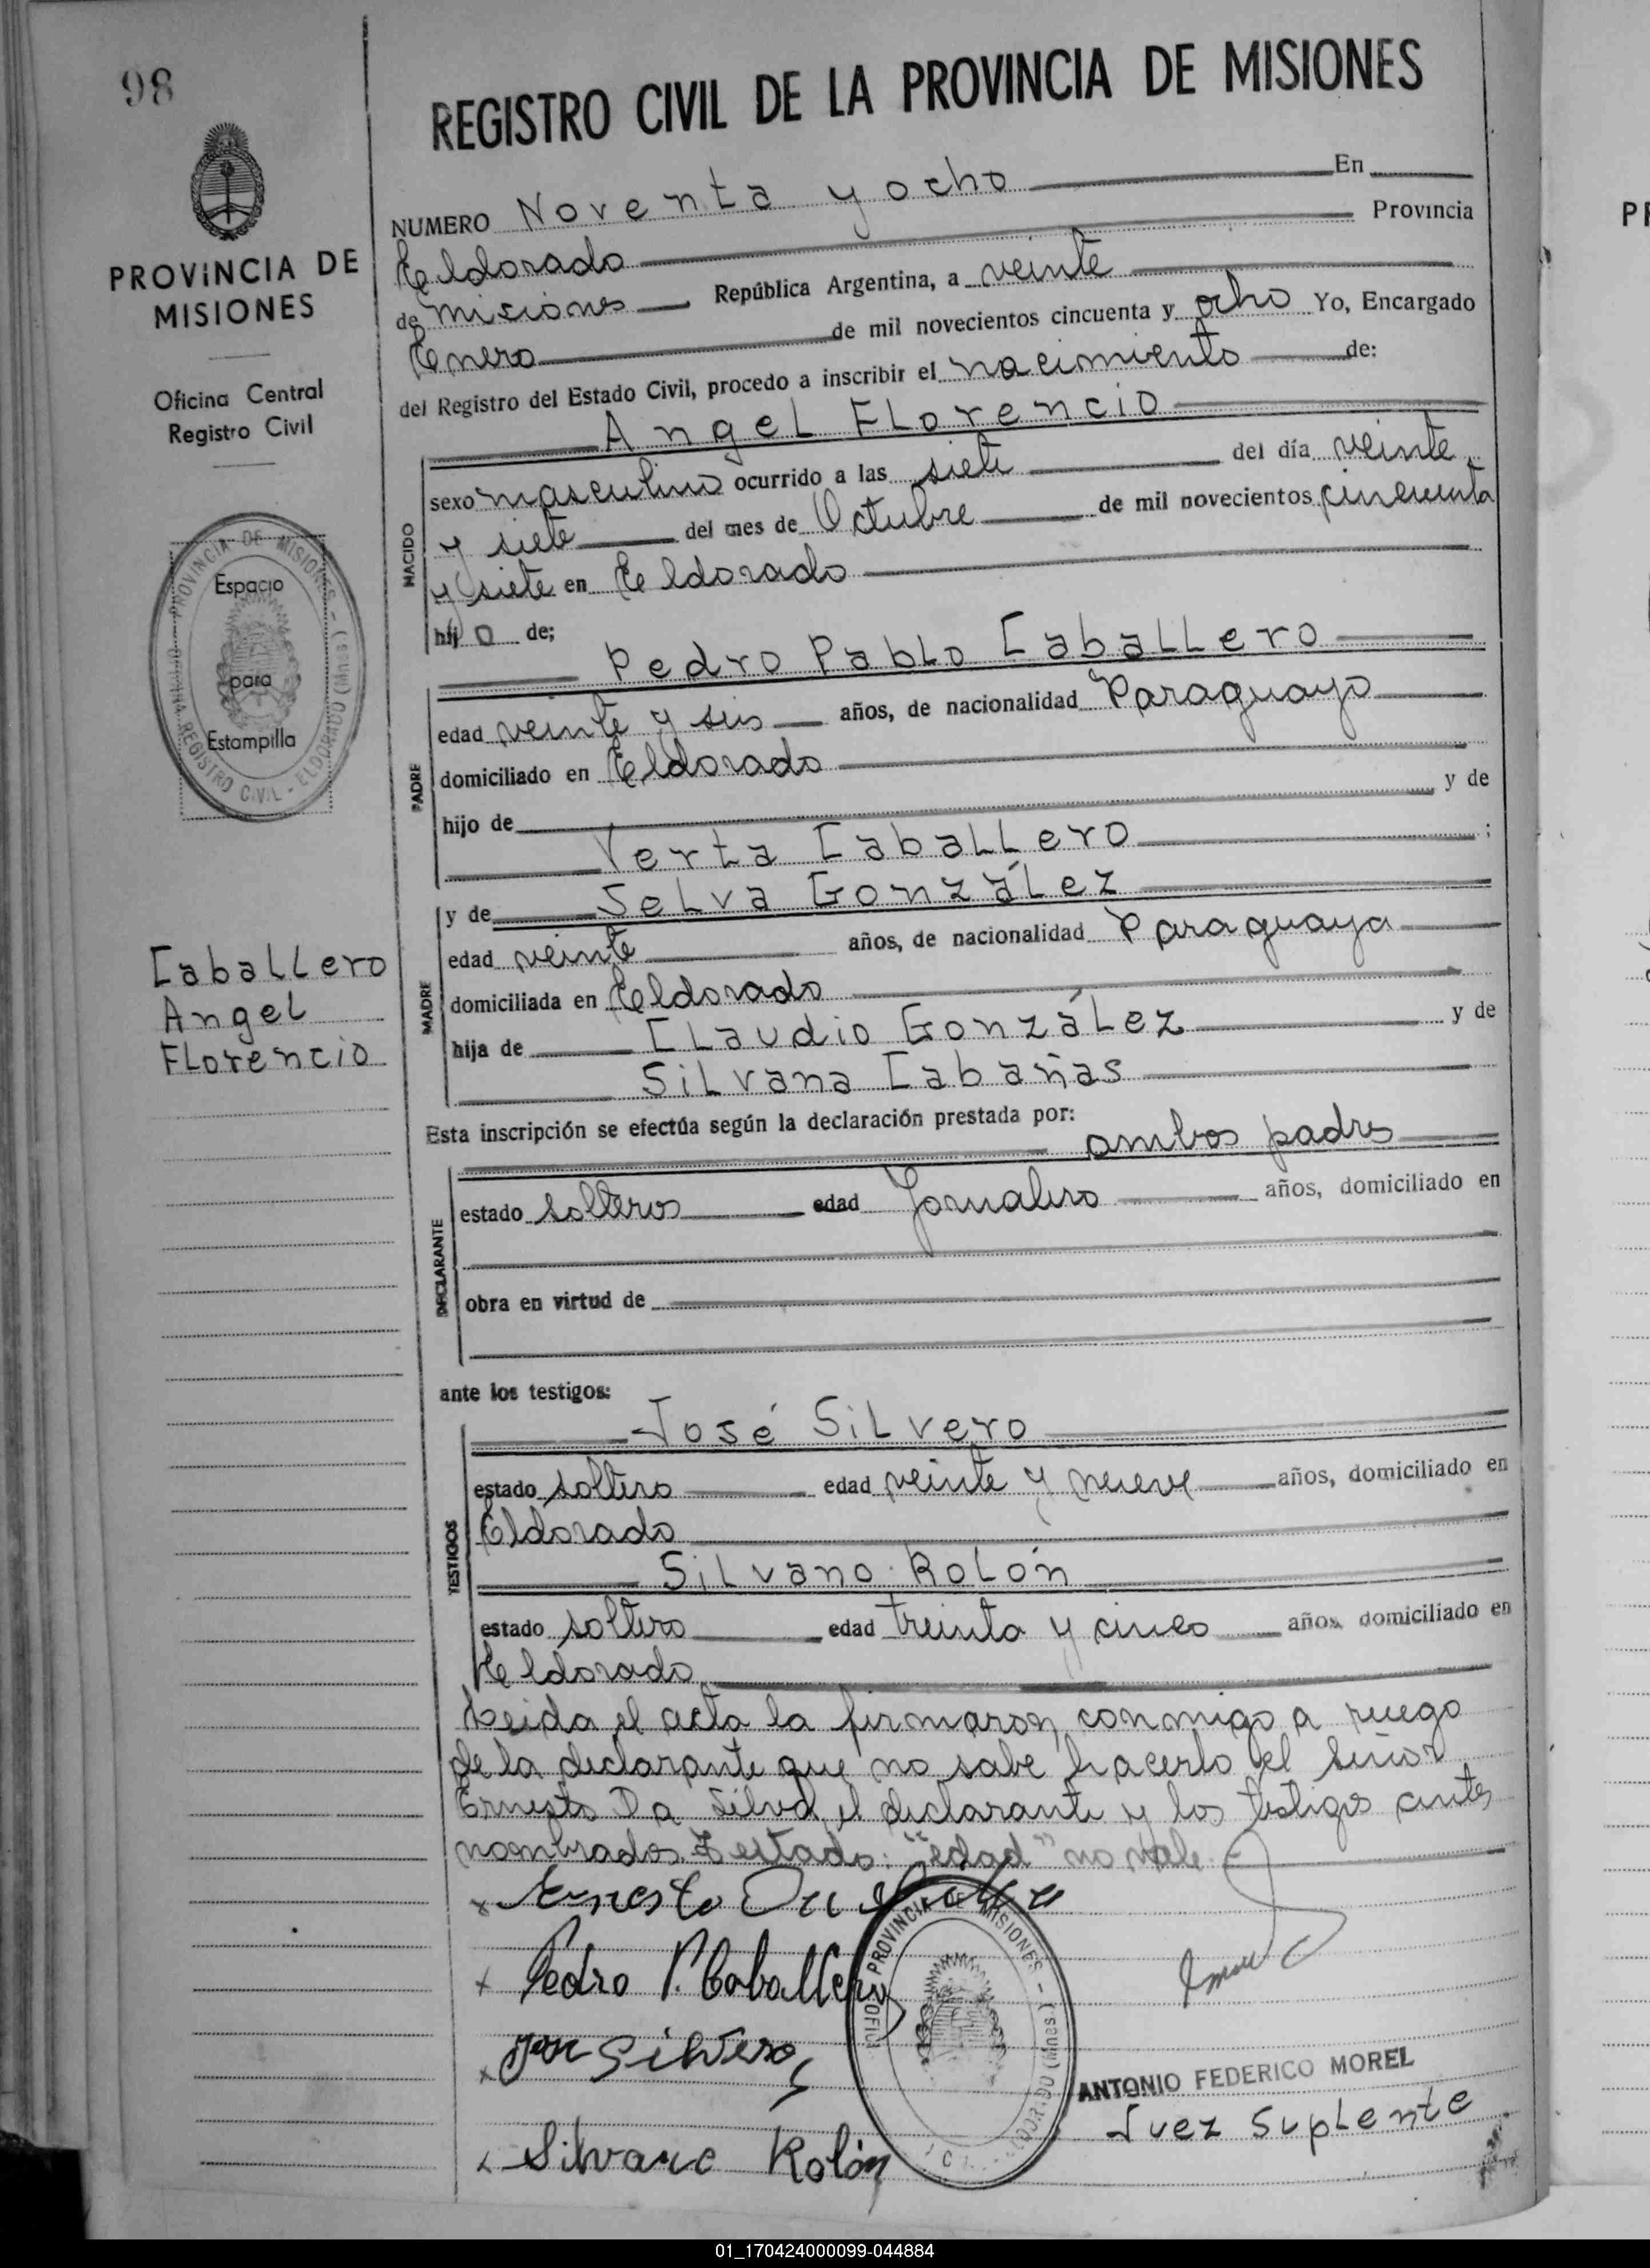 98
REGISTRO CIVIL DE LA PROVINCIA DE MISIONES
NUMERO Noventa y ocho En
Eldorado Provincia
de Misiones República Argentina, a veinte
Enero de mil novecientos cincuenta y ocho Yo, Encargado
del Registro del Estado Civil, procedo a inscribir el nacimiento de:
Angel Florencio
NACIDO
sexo masculino ocurrido a las siete del día veinte
y siete del mes de Octubre de mil novecientos cincuenta
y siete en Eldorado
hijo de;
Pedro Pablo Caballero
PADRE
edad veinte y seis años, de nacionalidad Paraguayo
domiciliado en Eldorado
hijo de y de
Verta Caballero ;
MADRE
y de Selva González
edad veinte años, de nacionalidad Paraguaya
domiciliada en Eldorado
hija de Claudio González y de
Silvana Cabañas
Esta inscripción se efectúa según la declaración prestada por:
ambos padres
DECLARANTE
estado solteros edad Jornalero años, domiciliado en
obra en virtud de
ante los testigos:
José Silvero
TESTIGOS
estado soltero edad veinte y nueve años, domiciliado en
Eldorado
Silvano Rolón
estado soltero edad treinta y cinco años, domiciliado en
Eldorado
Leida el acta la firmaron conmigo a ruego
de la declarante que no sabe hacerlo el señor
Ernesto Da Silva, el declarante y los testigos antes
nombrados. Testado: "edad" no vale.
x Ernesto Da Silva
x Pedro P. Caballero
x José Silvero
x Silvano Rolón
PROVINCIA DE MISIONES
ANTONIO FEDERICO MOREL
Juez Suplente
PROVINCIA DE
MISIONES
Oficina Central
Registro Civil
PROVINCIA DE MISIONES - ELDORADO (Mnes.) - REGISTRO CIVIL
Espacio
para
Estampilla
Caballero
Angel
Florencio
01_170424000099-044884